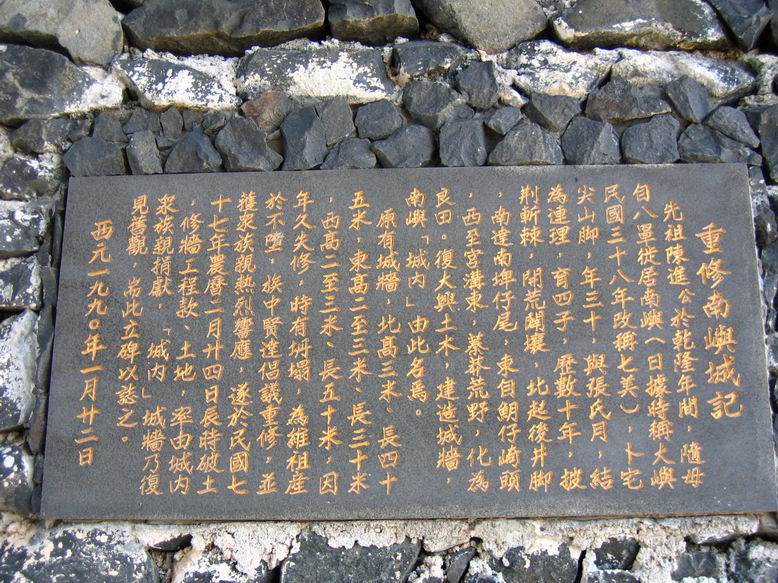 重修南嶼城記
先祖陳進公於乾隆年間,隨母
自八罩徙居南嶼(日據時稱大嶼
民國三十八年改稱七美)卜宅
尖山腳,年三十,與張氏月,結
為連理,育四子,歷數十年,披
荆斬棘,開荒闢壤,北起後井腳
,南達南埤仔尾,東自鮘仔崎頭
,西至宮溝東,蓁莽荒野,化為
良田。復大興土木,建造城牆,
南嶼「城內」由此名焉。
原有城牆,北高三米、長四十
五米,東高二至三米、長三十米
,西高二至三米、長五十米,因
年久失修,時有坍塌,為維祖產
於不墮,族中賢達倡議重修,並
獲眾族親熱烈響應,遂於民國七
十七年農曆二月廿四日辰時破土
,修牆工程款、土地,率由城內
眾族親捐獻,「城內」城牆乃復
見舊觀,耑此立碑以誌之。
西元一九九〇年一月廿二日